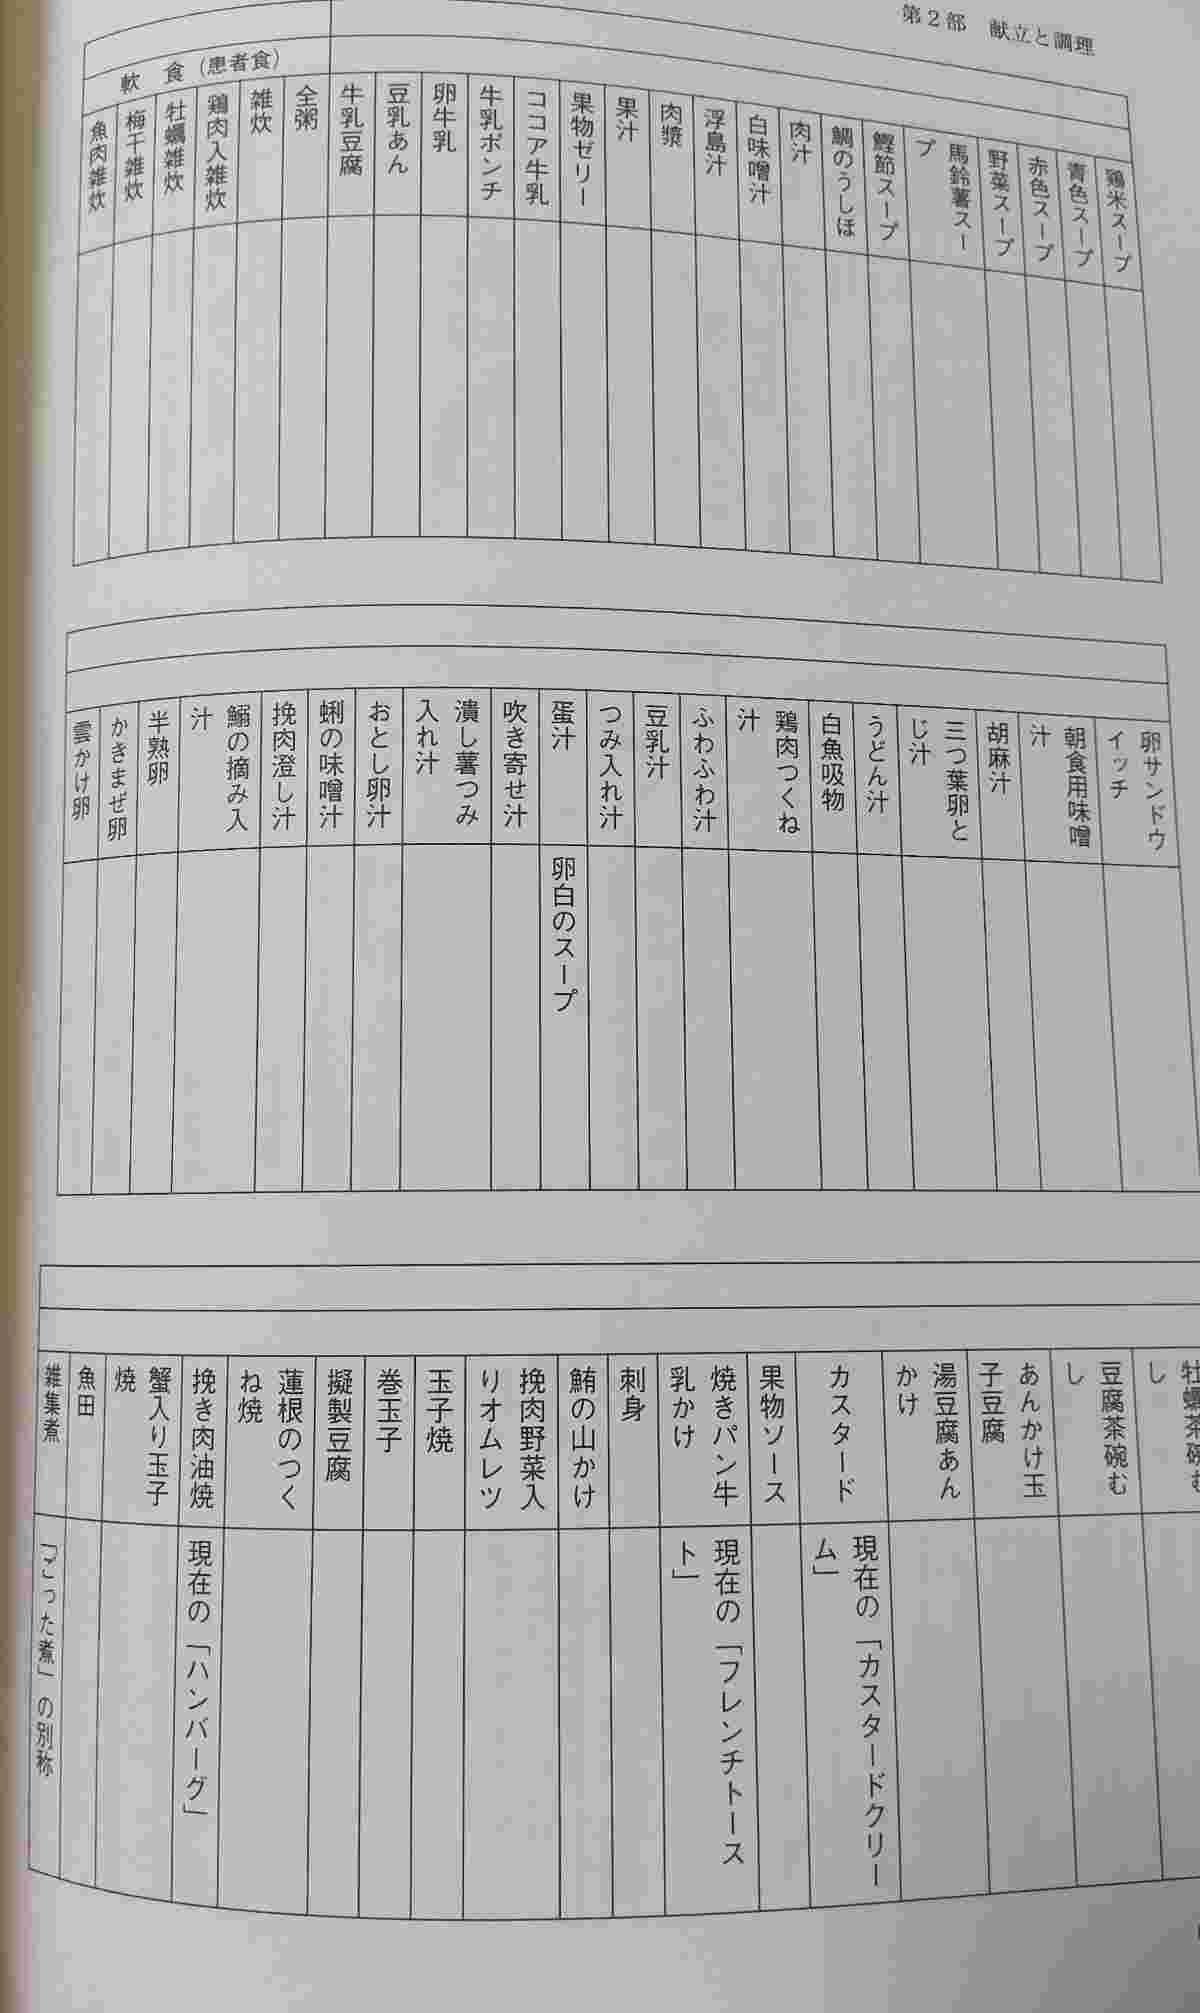 第2部　献立と調理
鶏米スープ
青色スープ
赤色スープ
野菜スープ
馬鈴薯スー
プ
鰹節スープ
鯛のうしほ
肉汁
白味噌汁
浮島汁
肉漿
果汁
果物ゼリー
ココア牛乳
牛乳ポンチ
卵牛乳
豆乳あん
牛乳豆腐
軟　食（患者食）
全粥
雑炊
鶏肉入雑炊
牡蠣雑炊
梅干雑炊
魚肉雑炊
卵サンドウ
イッチ
朝食用味噌
汁
胡麻汁
三つ葉卵と
じ汁
うどん汁
白魚吸物
鶏肉つくね
汁
ふわふわ汁
豆乳汁
つみ入れ汁
蛋汁
卵白のスープ
吹き寄せ汁
潰し薯つみ
入れ汁
おとし卵汁
蜊の味噌汁
挽肉澄し汁
鰯の摘み入
汁
半熟卵
かきまぜ卵
雲かけ卵
牡蠣茶碗む
し
豆腐茶碗む
し
あんかけ玉
子豆腐
湯豆腐あん
かけ
カスタード
現在の「カスタードクリー
ム」
果物ソース
焼きパン牛
乳かけ
現在の「フレンチトース
ト」
刺身
鮪の山かけ
挽肉野菜入
りオムレツ
玉子焼
巻玉子
擬製豆腐
蓮根のつく
ね焼
挽き肉油焼
現在の「ハンバーグ」
蟹入り玉子
焼
魚田
雑集煮
「ごった煮」の別称